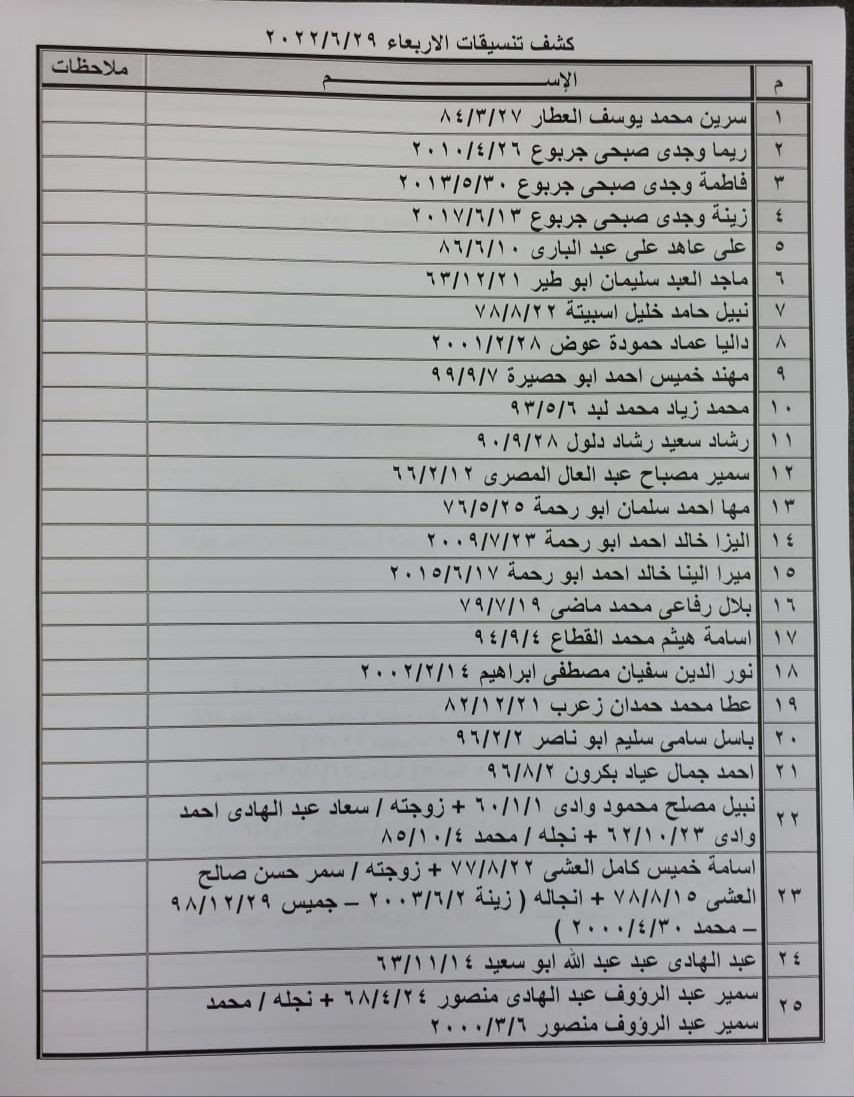 كشف تنسيقات الاربعاء ٢٠٢٢/٦/٢٩
م الإســـــــــــم ملاحظات
١ سرين محمد يوسف العطار ٨٤/٣/٢٧
٢ ريما وجدى صبحى جربوع ٢٠١٠/٤/٢٦
٣ فاطمة وجدى صبحى جربوع ٢٠١٣/٥/٣٠
٤ زينة وجدى صبحى جربوع ٢٠١٧/٦/١٣
٥ على عاهد على عبد البارى ٨٦/٦/١٠
٦ ماجد العبد سليمان ابو طير ٦٣/١٢/٢١
٧ نبيل حامد خليل اسبيتة ٧٨/٨/٢٢
٨ داليا عماد حمودة عوض ٢٠٠١/٢/٢٨
٩ مهند خميس احمد ابو حصيرة ٩٩/٩/٧
١٠ محمد زياد محمد لبد ٩٣/٥/٦
١١ رشاد سعيد رشاد دلول ٩٠/٩/٢٨
١٢ سمير مصباح عبد العال المصرى ٦٦/٢/١٢
١٣ مها احمد سلمان ابو رحمة ٧٦/٥/٢٥
١٤ اليزا خالد احمد ابو رحمة ٢٠٠٩/٧/٢٣
١٥ ميرا الينا خالد احمد ابو رحمة ٢٠١٥/٦/١٧
١٦ بلال رفاعى محمد ماضى ٧٩/٧/١٩
١٧ اسامة هيثم محمد القطاع ٩٤/٩/٤
١٨ نور الدين سفيان مصطفى ابراهيم ٢٠٠٢/٢/١٤
١٩ عطا محمد حمدان زعرب ٨٢/١٢/٢١
٢٠ باسل سامى سليم ابو ناصر ٩٦/٢/٢
٢١ احمد جمال عياد بكرون ٩٦/٨/٢
٢٢ نبيل مصلح محمود وادى ٦٠/١/١ + زوجته / سعاد عبد الهادى احمد
وادى ٦٢/١٠/٢٣ + نجله / محمد ٨٥/١٠/٤
٢٣ اسامة خميس كامل العشى ٧٧/٨/٢٢ + زوجته / سمر حسن صالح
العشى ٧٨/٨/١٥ + انجاله ( زينة ٢٠٠٣/٦/٢ – جميس ٩٨/١٢/٢٩
– محمد ٢٠٠٠/٤/٣٠ )
٢٤ عبد الهادى عبد عبد الله ابو سعيد ٦٣/١١/١٤
٢٥ سمير عبد الرؤوف عبد الهادى منصور ٦٨/٤/٢٤ + نجله / محمد
سمير عبد الرؤوف منصور ٢٠٠٠/٣/٦